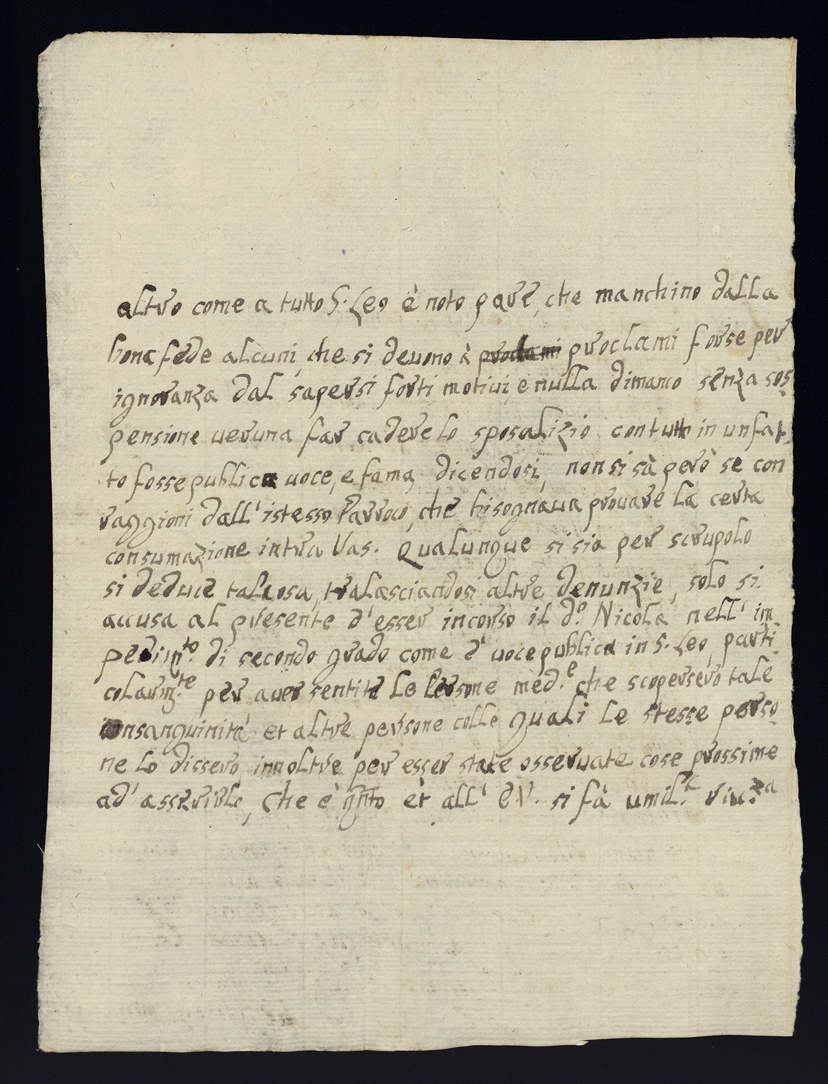 altro come a tutto S. Leo è noto pare, che manchino dalla
bona fede alcuni, che si devono à proclami proclami forse per
ignoranza dal sapersi forti motivi, e nulla dimano senza sos-
pensione veruna far cadere lo sposalizio contutto in un fat-
to fosse publica voce, e fama, dicendosi, non si sà però se con
raggioni dall'istesso Parroco, che bisognava provare la certa
consumazione intra Vas. Qualunque si sia per scrupolo
si deduce tal cosa, tralasciandosi altre denunzie, solo si
accusa al presente d'esser incorso il d.º Nicola nell'im-
pedim.to di secondo grado come è voce publica in S. Leo, parti-
colarm.te per aver sentite le persone med.e che scopersero tale
consanguinità et altre persone colle quali le stesse perso-
ne lo dissero innoltre per esser state osservate cose prossime
ad' asserirlo, che è q.nto et all' E.V. si fà umil.